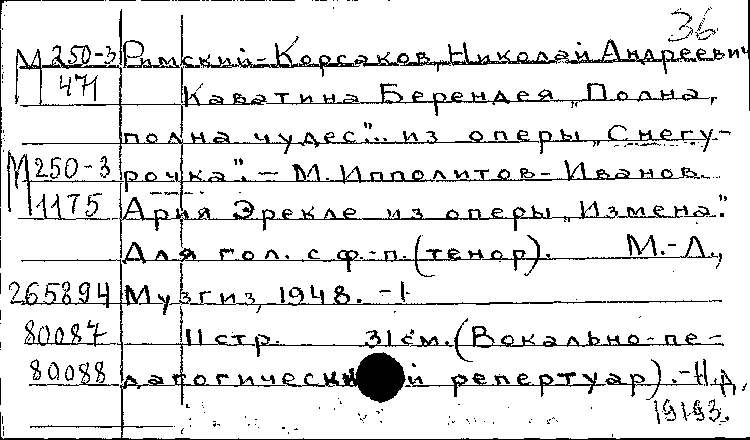 36
М 250-3 Римский-Корсаков, Николай Андреевич
471 Каватина Берендея „Полна,
полна чудес"... из оперы „Снегу-
М 250-3 рочка". – М. Ипполитов-Иванов.
1175 Ария Эрекле из оперы „Измена".
Для гол. с ф.-п. (тенор). М.-Л.,
265894 Музгиз, 1948. –
80087 11 стр. 31 см. (Вокально-пе-
80088 дагогический репертуар). – Н.д.
19193.